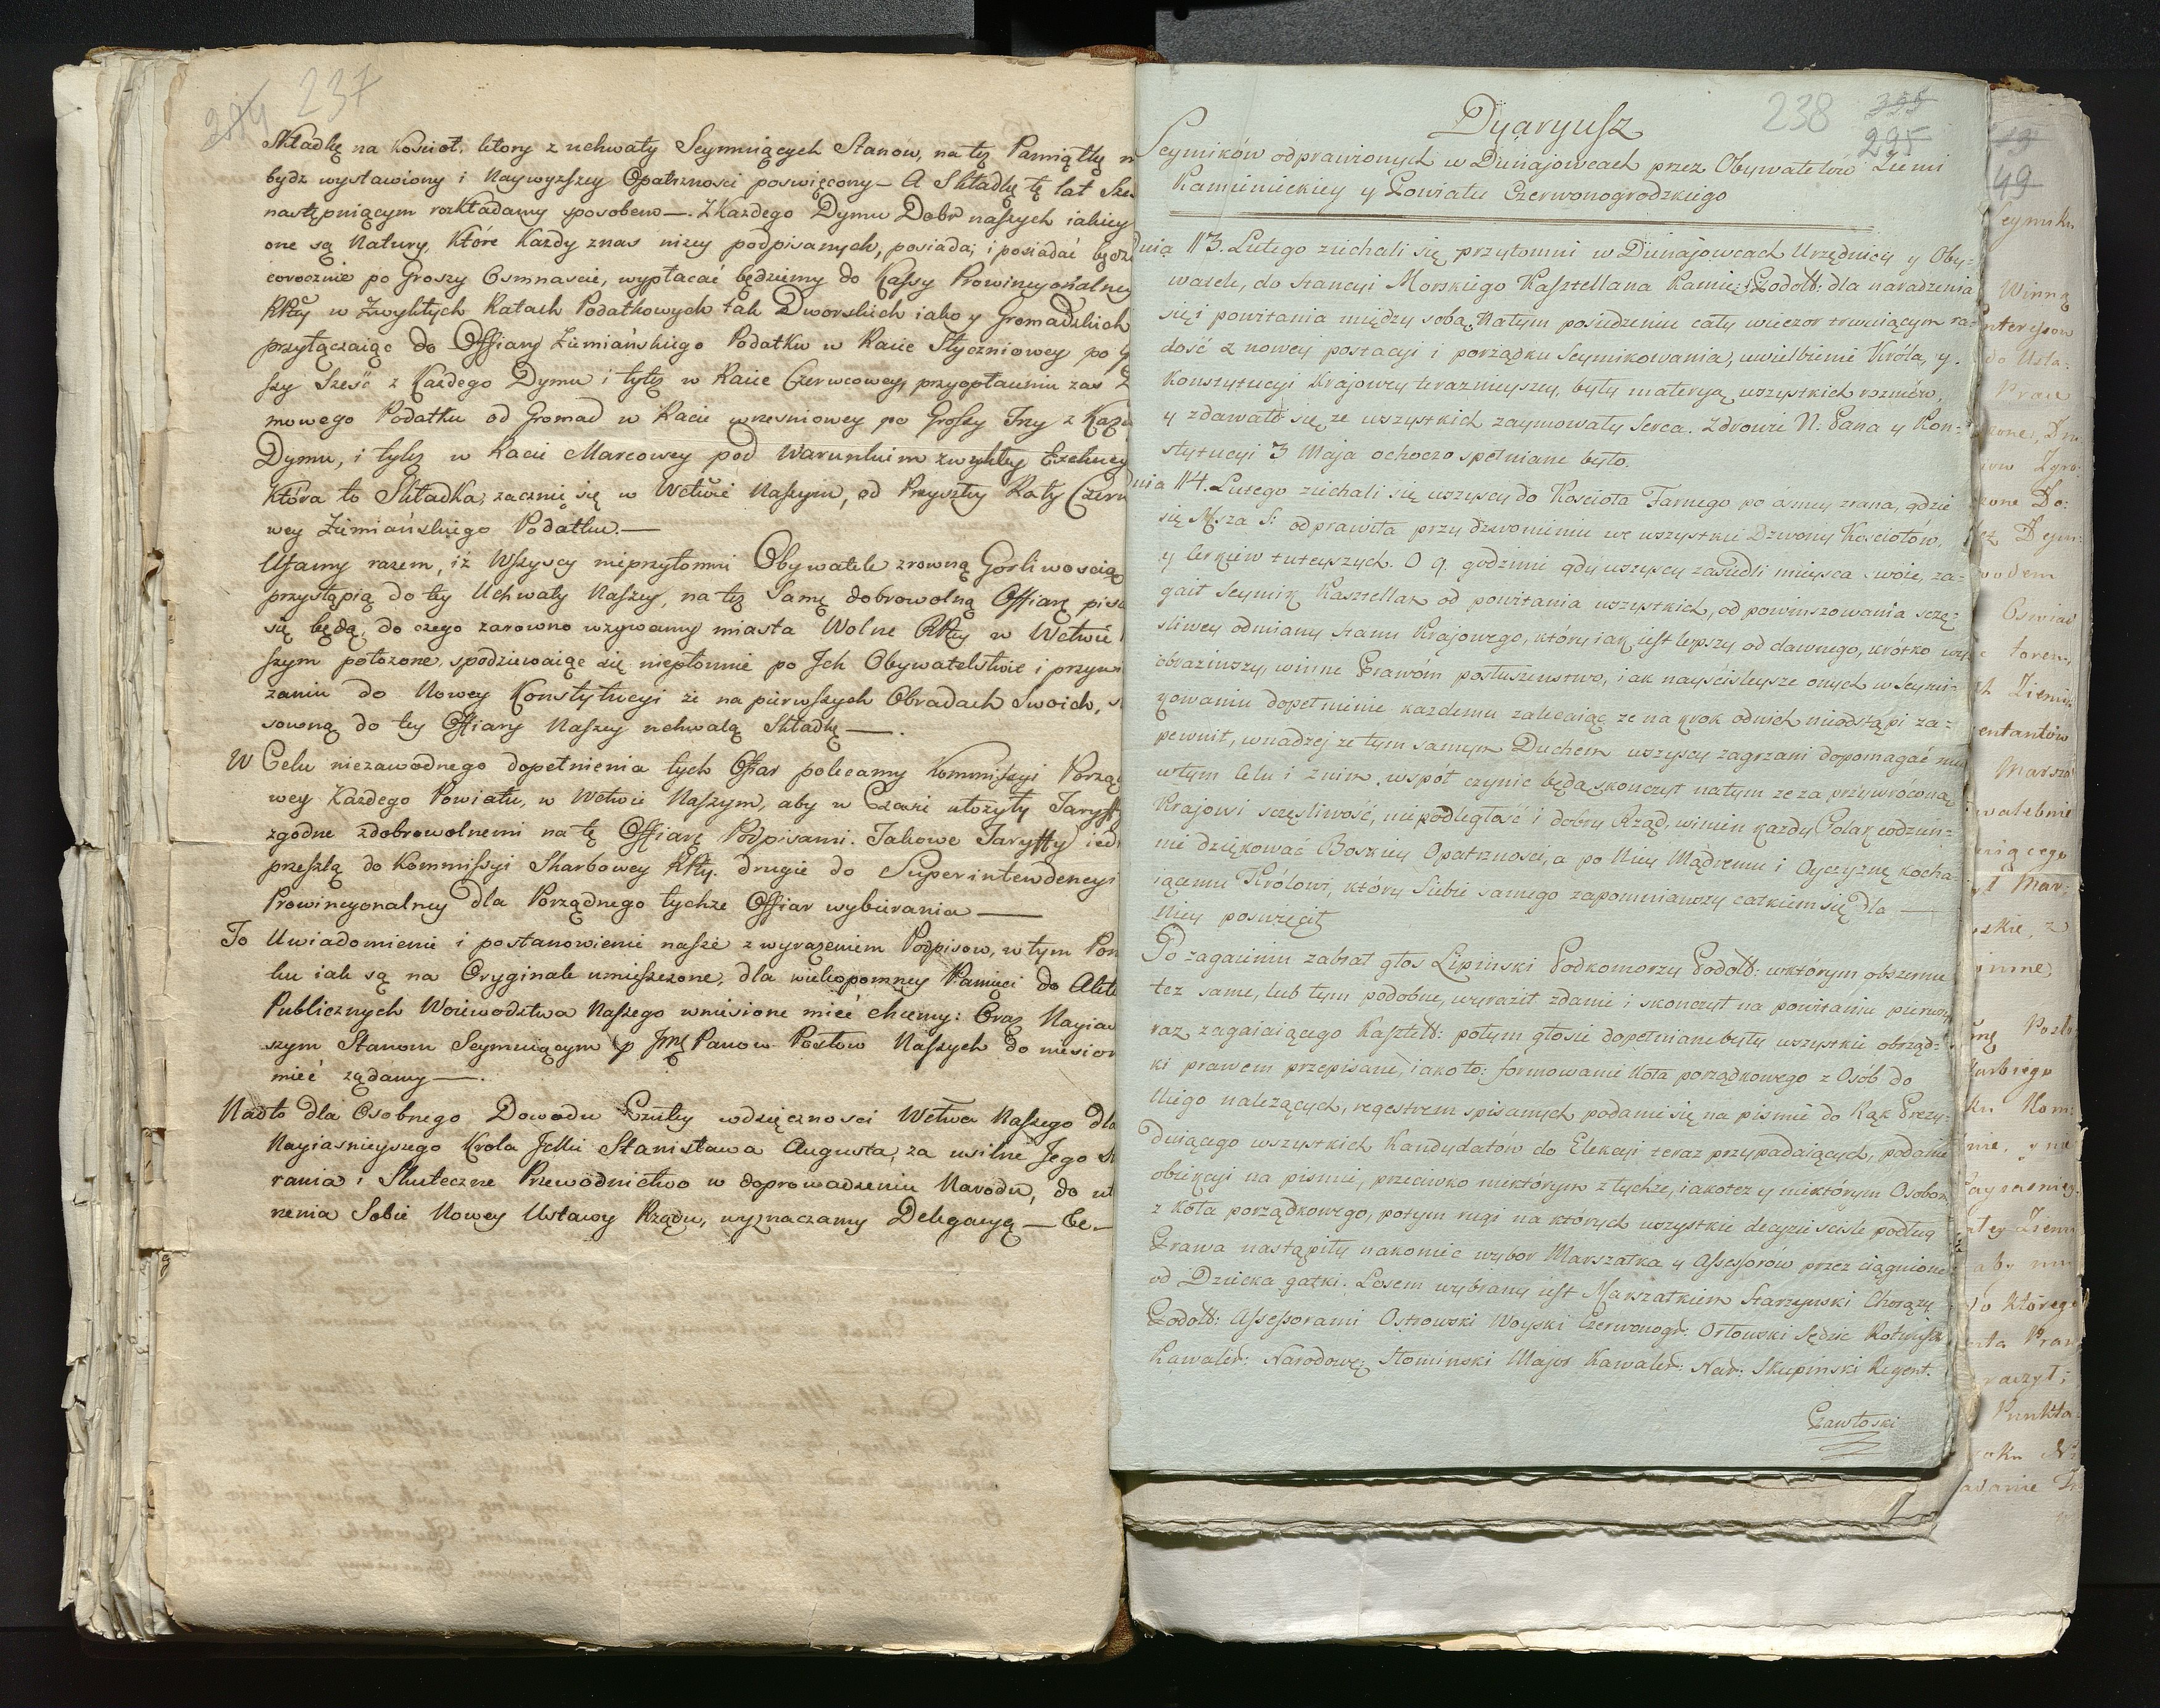 237
Składkę na Kościoł, ktory z uchwały Seymuiących Stanow, na tęż Pamiątkę
bydz wystawiony i Naywyzszey Opatrznosci poswięcony — A Składkę tę lat
następuiącym rozkładamy sposobem —. Z Każdego Dymu Dobr naszych iakiey
one są Natury, Które Każdy znas nizey podpisanych, posiada, i posiadać
corocznie po Groszy Osmnascie, wypłacać będziemy do Kassy Prowincyonalney
RPltey w Zwykłych Ratach Podatkowych tak Dworskich iako y Gromadzkich
przyłączaiąc do Offiary Ziemiańskiego Podatku w Racie Styczniowey po
szy Sześć z Każdego Dymu i tyleż w Racie Czerwcowey, przyopłaceniu zas
mowego Podatku od Gromad w Racie wrześniowey po Groszy Trzy z
Dymu, i tyleż w Racie Marcowey pod Warunkiem zwykłey Exekucyi
Która to Składka, zacznie się w Wctwie Naszym, od Przyszłey Raty
wey Ziemiańskiego Podatku. —
Ufamy razem, iż Wszyscy nieprzytomni Obywatele zrowną Gorliwoscią
przystąpią do tey Uchwały Naszey, na tęż Samę dobrowolną Offiarę
się będą, do czego zarowno wzywamy miasta Wolne RPltey w Wctwie
szym położone, spodziewaiąc się niepłonnie po Ich Obywatelstwie i
zaniu do Nowey Konstytucyi że na pierwszych Obradach Swoich,
sowną do tey Offiary Naszey uchwalą Składkę —.
W Celu niezawodnego dopełnienia tych Offiar polecamy Kommissyi
wey Każdego Powiatu, w Wctwie Naszym, aby w Czasie ułożyły
zgodne zdobrowolnemi na tę Offiarę Podpisami. Takowe Taryffy
przeszłą do Kommissyi Skarbowey RPltey. drugie do Superintendencyi
Prowincyonalney dla Porządnego tychże Offiar wybierania —
To Uwiadomienie i postanowienie nasze z wyrażeniem Podpisow, w tym
ku iak są na Oryginale umieszczone, dla wiekopomney Pamięci do
Publicznych Woiewodztwa Naszego wniesione mieć chcemy: Oraz
szym Stanom Seymuiącym p Jmę Panow Posłow Naszych do
mieć żądamy —.
Nadto dla Osobnego Dowodu Czułey wdzięcznosci Wctwa Naszego dla
Nayiasnieyszego Krola Jmci Stanisława Augusta, za usilne Jego
rania i Skuteczne Przewodnictwo w doprowadzeniu Narodu, do
nenia Sobie Nowey Ustawy Rządu, wyznaczamy Delegacyą —
238
295
Dyaryusz
Seymików odprawionych w Dunajowcach przez Obywatelów Ziemi
Kamienieckiey y Powiatu Czerwonogrodzkiego
dnia 13. Lutego ziechali się przytomni w Dunajowcach Urzędnicy y Oby-
watele, do Stancyi Morskiego Kasztellana Kamie: Podolb: dla naradzenia
się i powitania między sobą. Natym posiedzeniu cały wieczor trwaiącym ra-
dość z nowey postacyi i porządku Seymikowania, uwielbienie Króla, y
Konstytucyi Krajowey terazнieyszey, były materyą wszystkich rozmów,
y zdawało się ze wszystkich zaymowały Serca. Zdrowie N: Pana y Kon-
stytucyi 3 Maja ochoczo spełniane było.
dnia 14. Lutego ziechali się wszyscy do Kościoła Farnego po osmey zrana, gdzie
się Msza S: odprawiła przy dzwonieniu we wszystkie Dzwony Kościołów,
y Cerkiew tuteyszych. O 9. godzinie gdy wszyscy zasiedli mieysca swoie, za-
gaił Seymik Kasztellan od powitania wszystkich, od powinszowania szczę-
sliwey odmiany stanu Krajowego, który iak jest lepszy od dawnego, krótko wy-
obraziwszy, winne Prawóm posłuszenstwo, i ak nayściśleysze onych w Seymi-
kowaniu dopełnienie kazdemu zalecaiąc ze na krok odnich nieodstąpi za-
pewnił, wnadziej ze tym samym Duchem wszyscy zagrzani dopomagać mu
wtym Celu i znim wspót czynić będą skonczył natym ze za przywróconą
Krajowi szczęśliwość, niepodległość i dobry Rząd, winien kazdy Polak codzien-
nie dziękować Boskiey Opatrznosci, a po Niey Mądremu i Oyczyznę kocha-
iącemu Królowi, który Siebie samego zapomniawszy całkiem się dla —
Niey poswięcił
Po zagaieniu zabrał głos Lipinski Podkomorzy Podolb: wktórym obszernie
tez same, lub tym podobne, wyraził zdanie i skonczył na powitaniu pierwszy
raz, zagaiaiącego Kasztelb: potym głosie dopełniane były wszystkie obrząd-
ki prawem przepisane, iako to: formowanie Koła porządkowego z Osób do
Niego nalezących, regestrem spisanych podanie się na piśmie do Rąk Prezy-
duiącego wszystkich Kandydatów do Elekcyi teraz przypadaiących, podanie
obiekcyi na piśmie, przeciwko niektórym z tychże, iakotez y niektórym Osobom
z Koła porządkowego, potym rugi na których wszystkie decyzie sciśle podług
Prawa nastąpiły nakoniec wybor Marszałka y Assessorów przez ciągnione
od Dziecka gałki. Losem wybrany jest Marszałkiem Starzynski Chorąży
Podolb: Assessorami Ostrowski Woyski Czerwonogr: Orłowski Sędzic Rotmistr
Kawaler: Narodowey Słominski Major Kawaler: Nar: Skupinski Regent.
Pawłoski
49
Winną
do Usta-
Prace